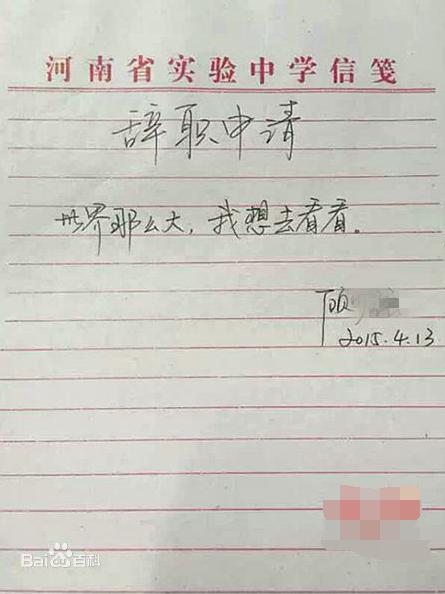 河南省实验中学信笺
辞职申请
世界那么大，我想去看看。
顾
2015.4.13
Bai百科